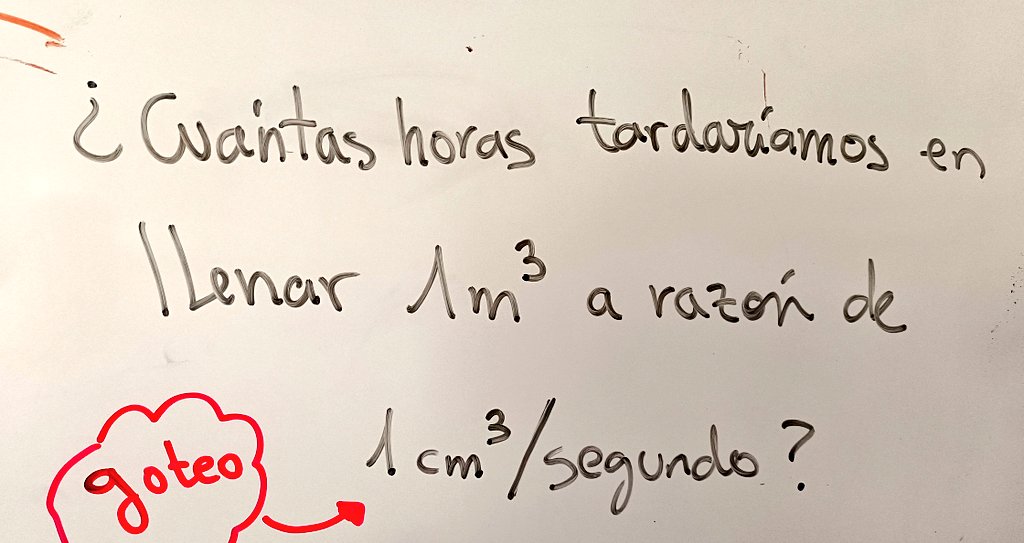 ¿Cuántas horas tardaríamos en
llenar 1m³ a razón de
1cm³/segundo?
goteo